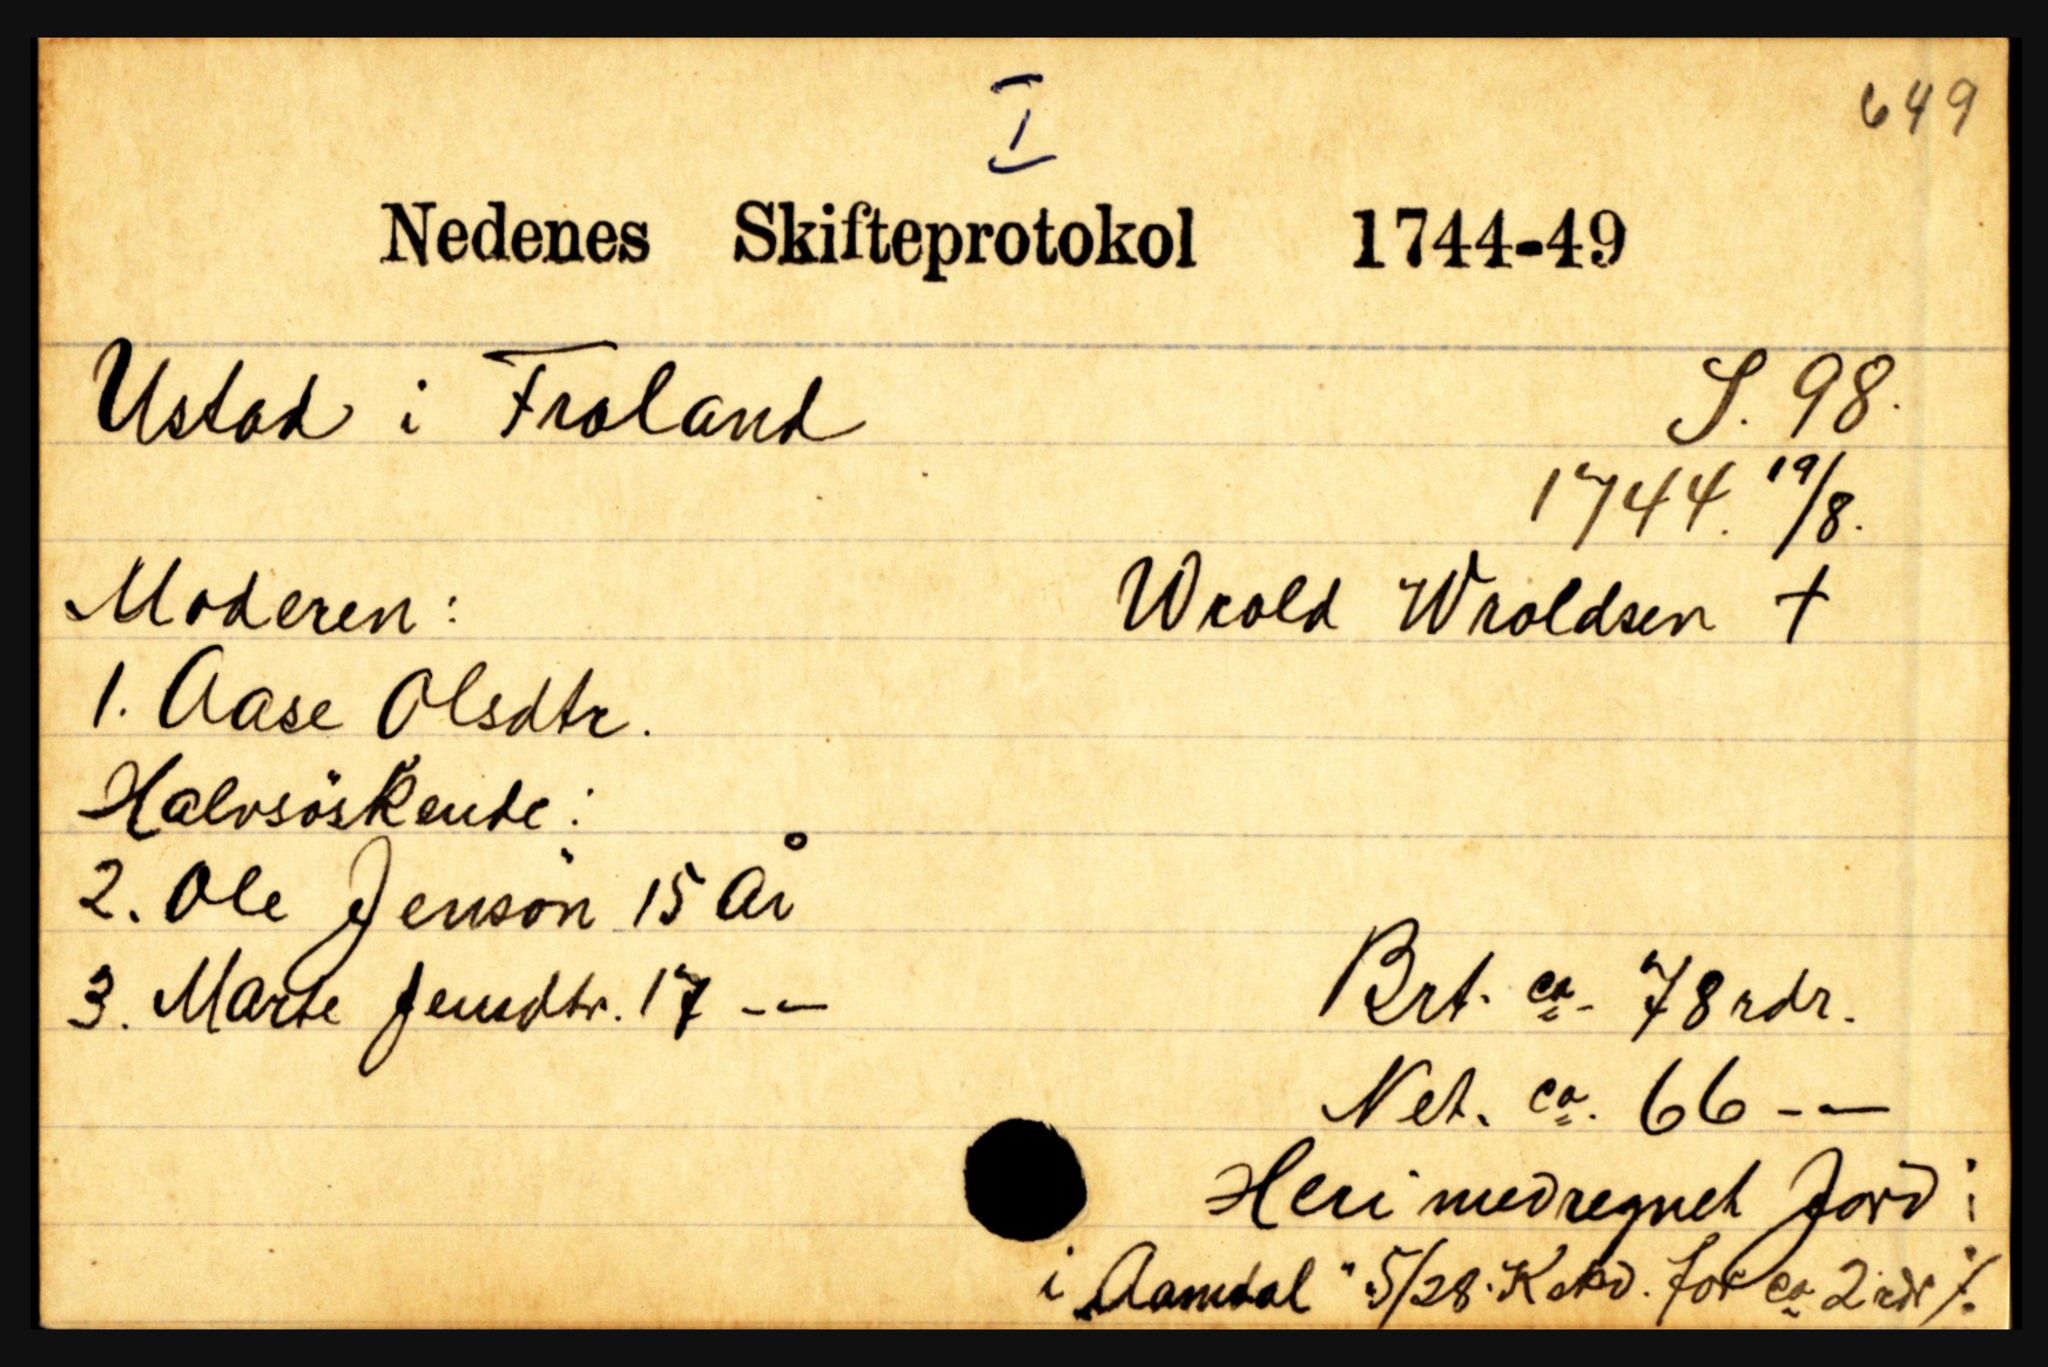 I
649
Nedenes Skifteprotokol 1744-49
Ustad i Froland S. 98.
1744. 19/8.
Moderen: Wrold Wroldsen +
1. Aase Olsdtr.
Halvsöskende:
2. Ole Jensön 15 År
3. Marte Jensdtr. 17 -- Brt. ca. 78 rdr.
Net. ca. 66 --
Heri medregnet Jord i
i Aamdal 5/28 for ca 2 rdr